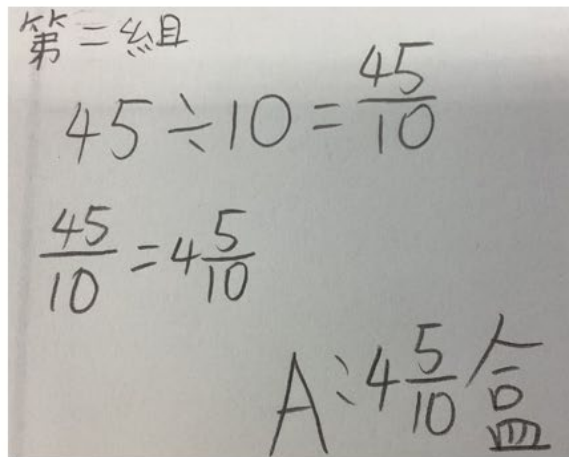 第二組
45÷10=45/10
45/10=4 5/10
A:4 5/10盒